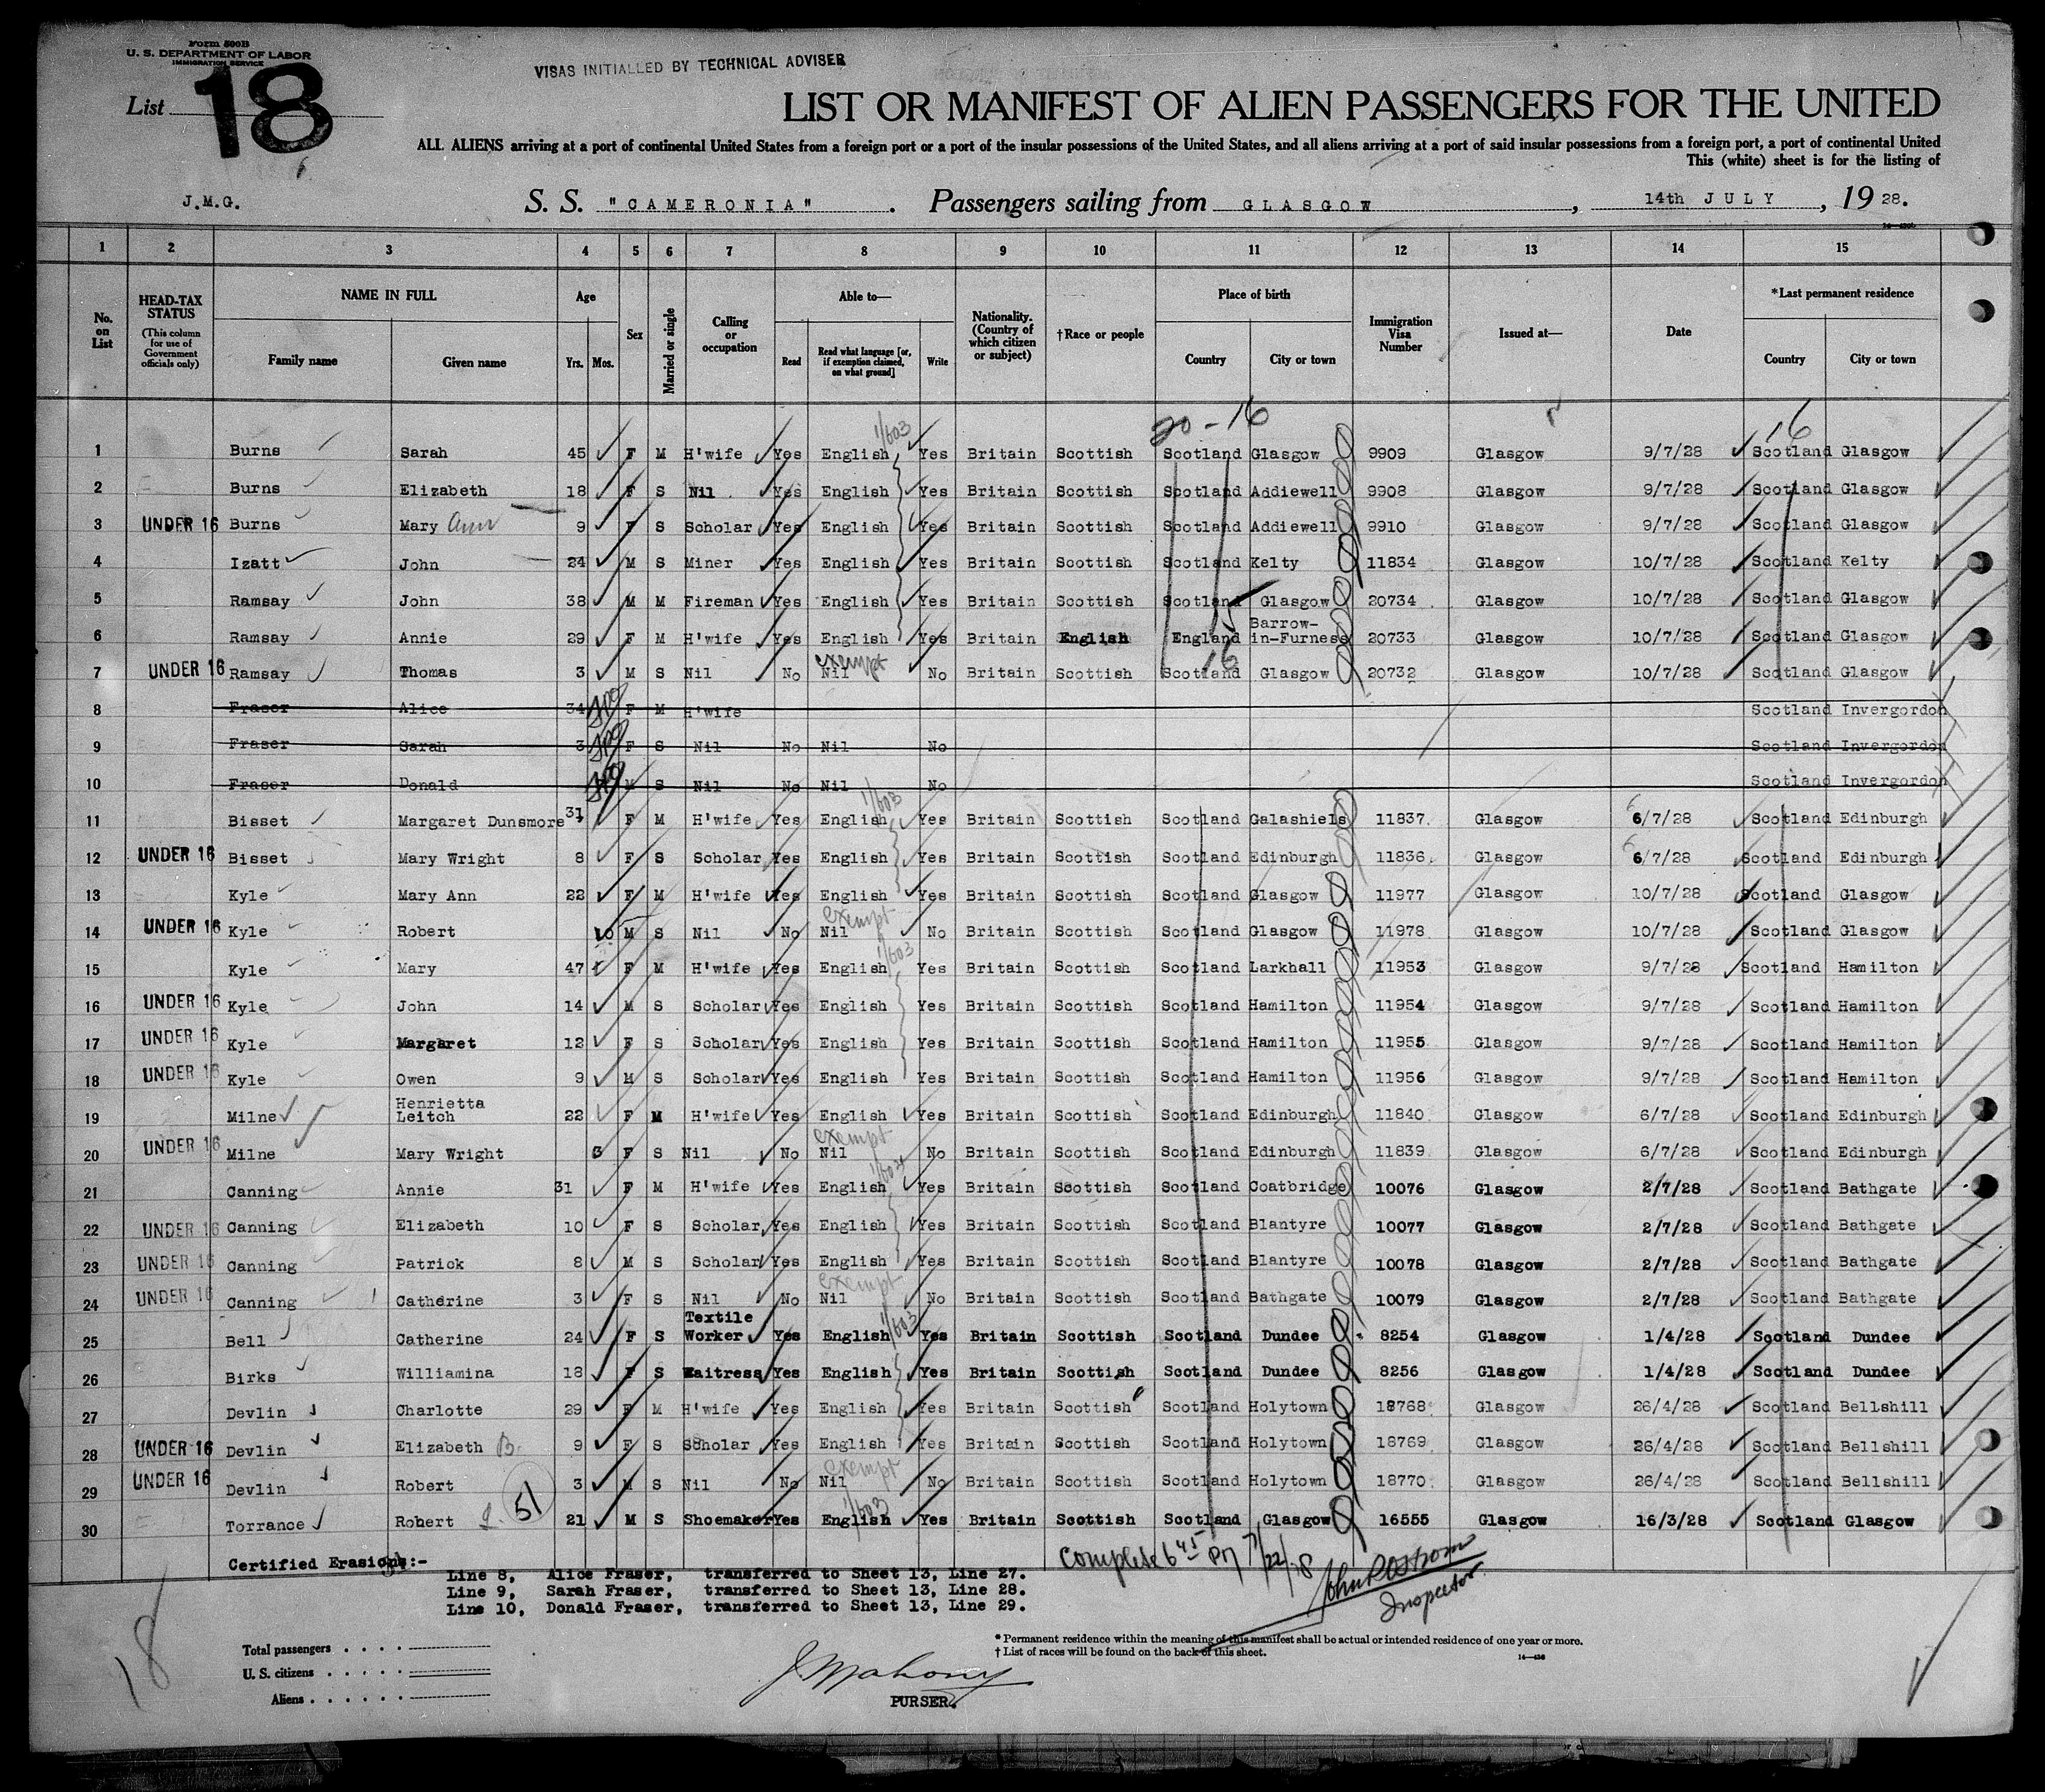 Form 500B
U. S. DEPARTMENT OF LABOR
IMMIGRATION SERVICE
VISAS INITIALLED BY TECHNICAL ADVISER
List 18
LIST OR MANIFEST OF ALIEN PASSENGERS FOR THE UNITED
ALL ALIENS arriving at a port of continental United States from a foreign port or a port of the insular possessions of the United States, and all aliens arriving at a port of said insular possessions from a foreign port, a port of continental United
This (white) sheet is for the listing of
J.M.G. S. S. "CAMERONIA". Passengers sailing from GLASGOW, 14th JULY, 19 28.
1 2 3 4 5 6 7 8 9 10 11 12 13 14 15
No. on List
HEAD-TAX STATUS (This column for use of Government officials only)
NAME IN FULL
Family name Given name
Age
Yrs. Mos.
Sex
Married or single
Calling or occupation
Able to—
Read Read what language [or, if exemption claimed, on what ground] Write
Nationality. (Country of which citizen or subject)
†Race or people
Place of birth
Country City or town
Immigration Visa Number
Issued at—
Date
*Last permanent residence
Country City or town
20 - 16 16
1 Burns Sarah 45 F M H'wife Yes English Yes Britain Scottish Scotland Glasgow 9909 Glasgow 9/7/28 Scotland Glasgow
2 Burns Elizabeth 18 F S Nil Yes English Yes Britain Scottish Scotland Addiewell 9908 Glasgow 9/7/28 Scotland Glasgow
3 UNDER 16 Burns Mary Ann 9 F S Scholar Yes English Yes Britain Scottish Scotland Addiewell 9910 Glasgow 9/7/28 Scotland Glasgow
4 Izatt John 24 M S Miner Yes English Yes Britain Scottish Scotland Kelty 11834 Glasgow 10/7/28 Scotland Kelty
5 Ramsay John 38 M M Fireman Yes English Yes Britain Scottish Scotland Glasgow 20734 Glasgow 10/7/28 Scotland Glasgow
6 Ramsay Annie 29 F M H'wife Yes English Yes Britain English England Barrow-in-Furness 20733 Glasgow 10/7/28 Scotland Glasgow
7 UNDER 16 Ramsay Thomas 3 M S Nil No Nil exempt No Britain Scottish Scotland Glasgow 20732 Glasgow 10/7/28 Scotland Glasgow
8 Fraser Alice 34 F M H'wife Scotland Invergordon
9 Fraser Sarah 3 F S Nil No Nil No Scotland Invergordon
10 Fraser Donald M S Nil No Nil No Scotland Invergordon
11 Bisset Margaret Dunsmore 31 F M H'wife Yes English Yes Britain Scottish Scotland Galashiels 11837 Glasgow 6/7/28 Scotland Edinburgh
12 UNDER 16 Bisset Mary Wright 8 F S Scholar Yes English Yes Britain Scottish Scotland Edinburgh 11836 Glasgow 6/7/28 Scotland Edinburgh
13 Kyle Mary Ann 22 F M H'wife Yes English Yes Britain Scottish Scotland Glasgow 11977 Glasgow 10/7/28 Scotland Glasgow
14 UNDER 16 Kyle Robert 10 M S Nil No Nil exempt No Britain Scottish Scotland Glasgow 11978 Glasgow 10/7/28 Scotland Glasgow
15 Kyle Mary 47 F M H'wife Yes English Yes Britain Scottish Scotland Larkhall 11953 Glasgow 9/7/28 Scotland Hamilton
16 UNDER 16 Kyle John 14 M S Scholar Yes English Yes Britain Scottish Scotland Hamilton 11954 Glasgow 9/7/28 Scotland Hamilton
17 UNDER 16 Kyle Margaret 12 F S Scholar Yes English Yes Britain Scottish Scotland Hamilton 11955 Glasgow 9/7/28 Scotland Hamilton
18 UNDER 16 Kyle Owen 9 M S Scholar Yes English Yes Britain Scottish Scotland Hamilton 11956 Glasgow 9/7/28 Scotland Hamilton
19 Milne Henrietta Leitch 22 F M H'wife Yes English Yes Britain Scottish Scotland Edinburgh 11840 Glasgow 6/7/28 Scotland Edinburgh
20 UNDER 16 Milne Mary Wright 3 F S Nil No Nil exempt No Britain Scottish Scotland Edinburgh 11839 Glasgow 6/7/28 Scotland Edinburgh
21 Canning Annie 31 F M H'wife Yes English Yes Britain Scottish Scotland Coatbridge 10076 Glasgow 2/7/28 Scotland Bathgate
22 UNDER 16 Canning Elizabeth 10 F S Scholar Yes English Yes Britain Scottish Scotland Blantyre 10077 Glasgow 2/7/28 Scotland Bathgate
23 UNDER 16 Canning Patrick 8 M S Scholar Yes English Yes Britain Scottish Scotland Blantyre 10078 Glasgow 2/7/28 Scotland Bathgate
24 UNDER 16 Canning Catherine 3 F S Nil No Nil exempt No Britain Scottish Scotland Bathgate 10079 Glasgow 2/7/28 Scotland Bathgate
25 Bell Catherine 24 F S Textile Worker Yes English Yes Britain Scottish Scotland Dundee 8254 Glasgow 1/4/28 Scotland Dundee
26 Birks Williamina 18 F S Waitress Yes English Yes Britain Scottish Scotland Dundee 8256 Glasgow 1/4/28 Scotland Dundee
27 Devlin Charlotte 29 F M H'wife Yes English Yes Britain Scottish Scotland Holytown 18768 Glasgow 26/4/28 Scotland Bellshill
28 UNDER 16 Devlin Elizabeth B. 9 F S Scholar Yes English Yes Britain Scottish Scotland Holytown 18769 Glasgow 26/4/28 Scotland Bellshill
29 UNDER 16 Devlin Robert 3 M S Nil No Nil exempt No Britain Scottish Scotland Holytown 18770 Glasgow 26/4/28 Scotland Bellshill
30 Torrance Robert 51 21 M S Shoemaker Yes English Yes Britain Scottish Scotland Glasgow 16555 Glasgow 16/3/28 Scotland Glasgow
Certified Erasions:-
Line 8, Alice Fraser, transferred to Sheet 13, Line 27.
Line 9, Sarah Fraser, transferred to Sheet 13, Line 28.
Line 10, Donald Fraser, transferred to Sheet 13, Line 29.
Complete 6 45 PM 7/22/28
John R Ostrom
Inspector
18
Total passengers
U. S. citizens
Aliens
* Permanent residence within the meaning of this manifest shall be actual or intended residence of one year or more.
† List of races will be found on the back of this sheet.
J Mahony
PURSER.